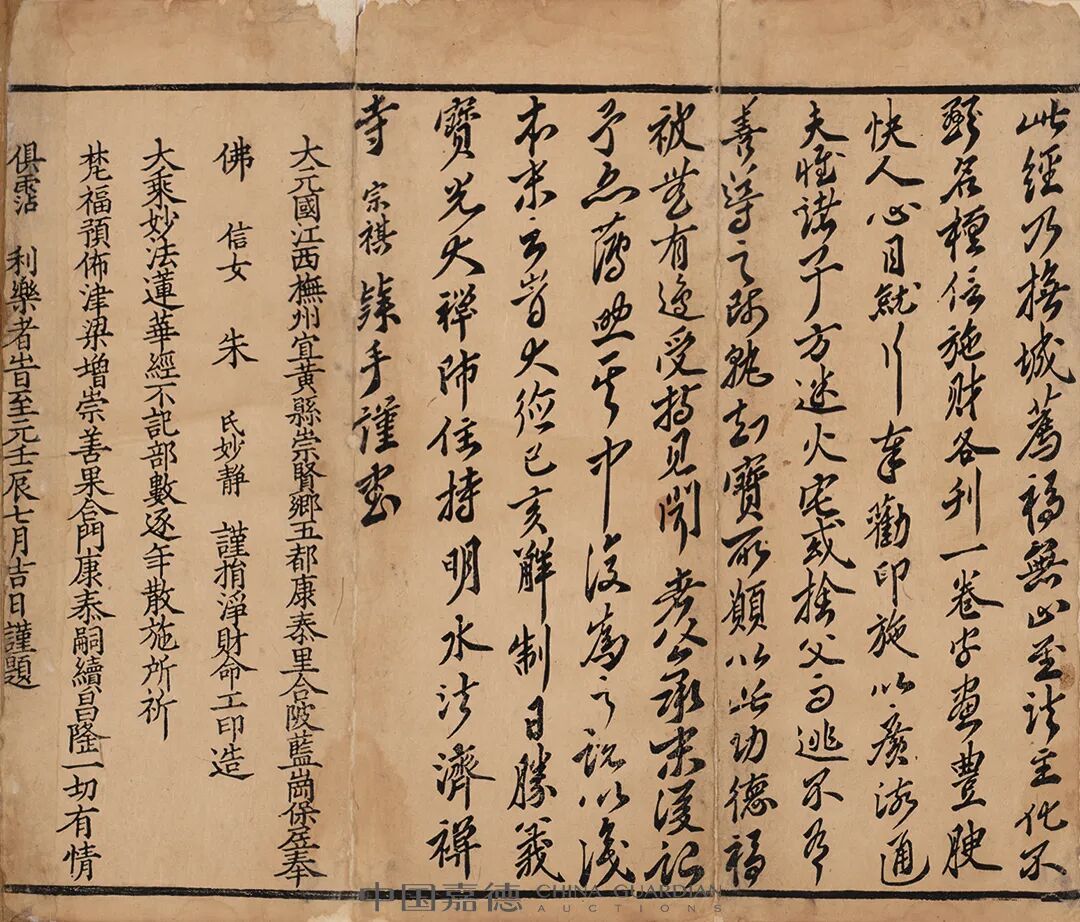 此經乃撫城薦福無上𡈽法主化不
名種信施財各刊一卷字畫豊腴
快人心目就以奉勸印施以廣流通
夫惟諸子方迷火宅或捨父而逃不有
善導之師孰知寶所願以此功德福
被無有邊受持見聞
予
本末云峕大德己亥解制日勝義
寶光大禪師住持明水法濟禪
寺宗祺 手謹書
大元國江西撫州宜黃縣崇賢鄉五都康泰里合陂藍崗保居奉
佛信女朱氏妙靜謹捐淨財命工印造
大乘妙法蓮華經不記部數逐年散施所祈
梵福預佈津梁增崇善果合門康泰嗣續昌隆一切有情
俱霑利樂者峕至元壬辰七月吉日謹題
中国嘉德 CHINA GUARDIAN
AUCTIONS